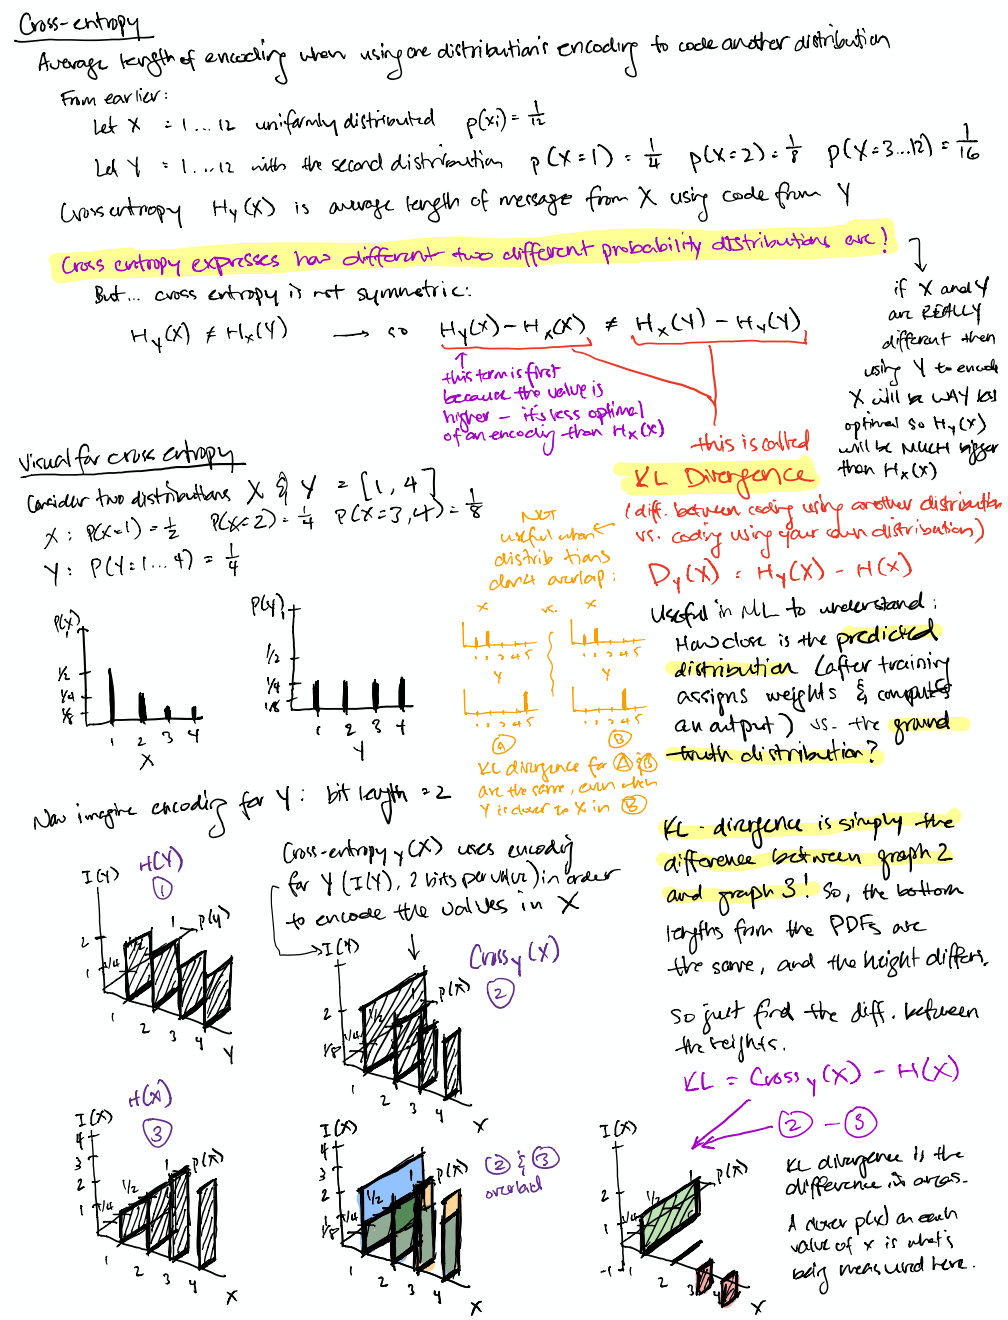 Cross-entropy
Average length of encoding when using one distribution's encoding to code another distribution
From earlier:
Let X = 1...12 uniformly distributed p(xi) = 1/12
Let Y = 1...12 with the second distribution p(X=1) = 1/4 p(X=2) = 1/8 p(X=3...12) = 1/16
Cross entropy Hy(X) is average length of message from X using code from Y
Cross entropy expresses how different two different probability distributions are!
But... cross entropy is not symmetric:
Hy(X) ≠ Hx(Y) → so Hy(X) - Hx(X) ≠ Hx(Y) - Hy(Y)
if X and Y
are REALLY
different then
using Y to encode
X will be WAY less
optimal so Hy(X)
will be MUCH bigger
than Hx(X)
this term is first
because the value is
higher - it's less optimal
of an encoding than Hx(X)
this is called
KL Divergence
(diff. between coding using another distribution
vs. coding using your own distribution)
Dy(X) = Hy(X) - H(X)
Visual for cross entropy
Consider two distributions X & Y = [1, 4]
X: P(X=1) = 1/2 P(X=2) = 1/4 P(X=3,4) = 1/8
Y: P(Y=1...4) = 1/4
NOT
useful when
distributions
don't overlap:
X vs. X
1 2 3 4 5 1 2 3 4 5
Y Y
A B
KL divergence for A & B
are the same, even when
Y is closer to X in B
P(X)
1
1/2
1/4
1/8
1 2 3 4
X
P(Y)
1
1/2
1/4
1/8
1 2 3 4
Y
Useful in ML to understand:
How close is the predicted
distribution (after training
assigns weights & computes
an output) vs. the ground
truth distribution?
Now imagine encoding for Y: bit length = 2
KL-divergence is simply the
difference between graph 2
and graph 3! So, the bottom
lengths from the PDFs are
the same, and the height differs.
So just find the diff. between
the heights.
KL = Crossy(X) - H(X)
2 - 3
H(Y)
1
I(Y)
2
1
1/4
1
P(Y)
1 2 3 4
Y
Cross-entropy y(X) uses encoding
for Y (I(Y), 2 bits per value) in order
to encode the values in X
I(Y)
Crossy(X)
2
2
1
1/2
1/4
1/8
P(X)
1 2 3 4
X
H(X)
3
I(X)
4
3
2
1
1/2
1/4
1
P(X)
1 2 3 4
X
I(X)
4
3
2
1
1/2
1/4
1/8
P(X)
1 2 3 4
X
2 & 3
overlaid
I(X)
2
1
1/2
1/4
-1
P(X)
1 2 3 4
X
KL divergence is the
difference in areas.
A closer p(x) on each
value of x is what's
being measured here.